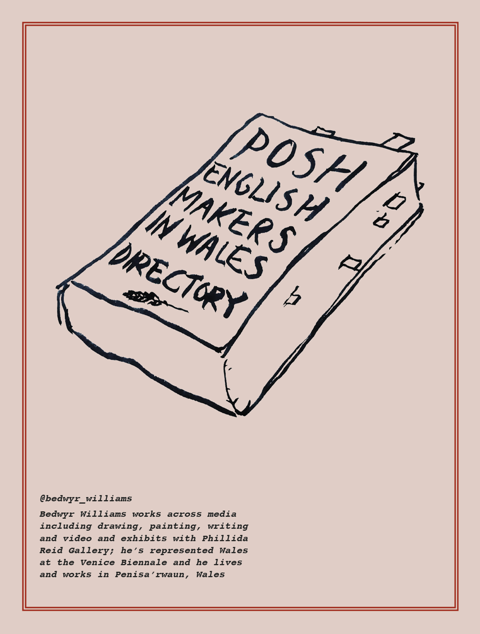 POSH
ENGLISH
MAKERS
IN WALES
DIRECTORY
@bedwyr_williams
Bedwyr Williams works across media
including drawing, painting, writing
and video and exhibits with Phillida
Reid Gallery; he's represented Wales
at the Venice Biennale and he lives
and works in Penisa'rwaun, Wales